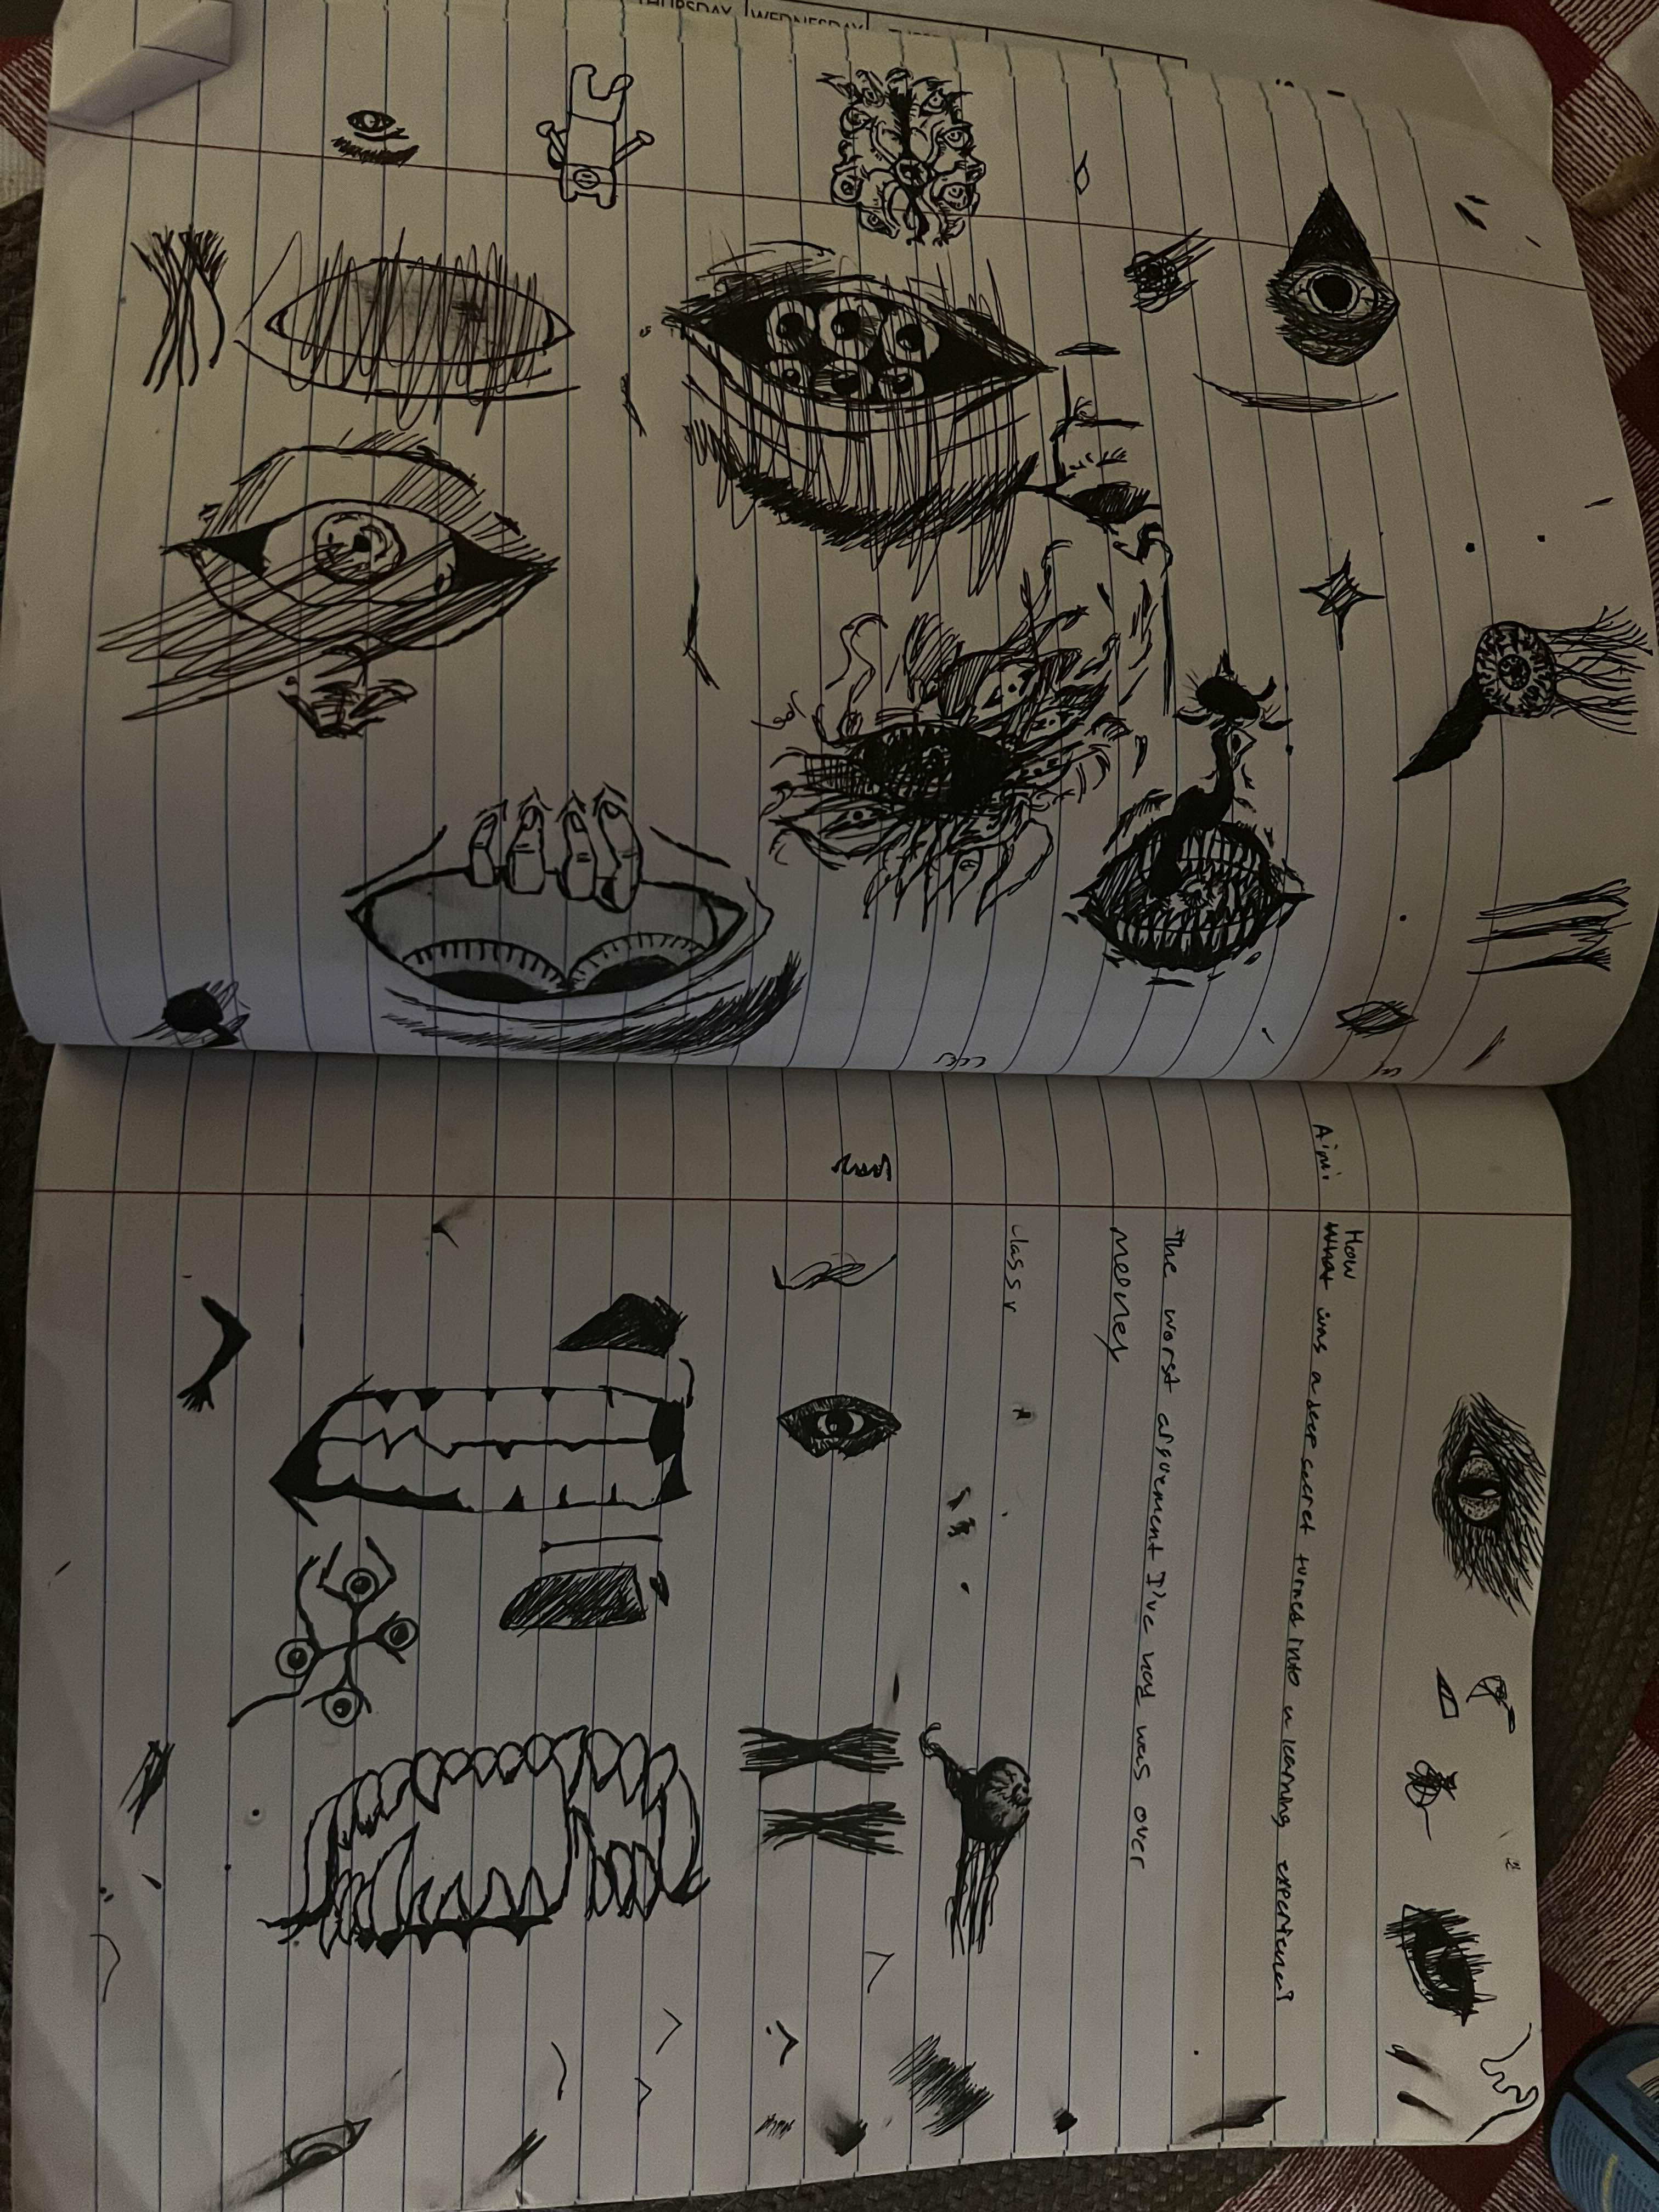 THURSDAY WEDNESDAY
How
Aim: What was a deep secret turnes into a learning experience?
The worst arguement I've had was over
meoney
class r